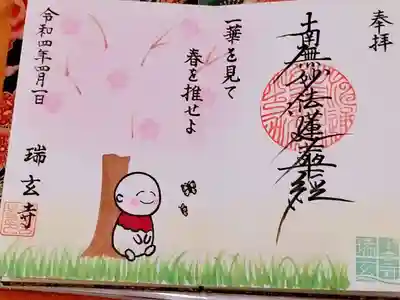 奉拝
南無妙法蓮華経
一華を見て
春を推せよ
令和四年四月一日
瑞玄寺